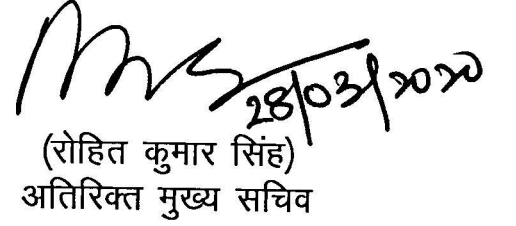 28/03/2020
(रोहित कुमार सिंह)
अतिरिक्त मुख्य सचिव